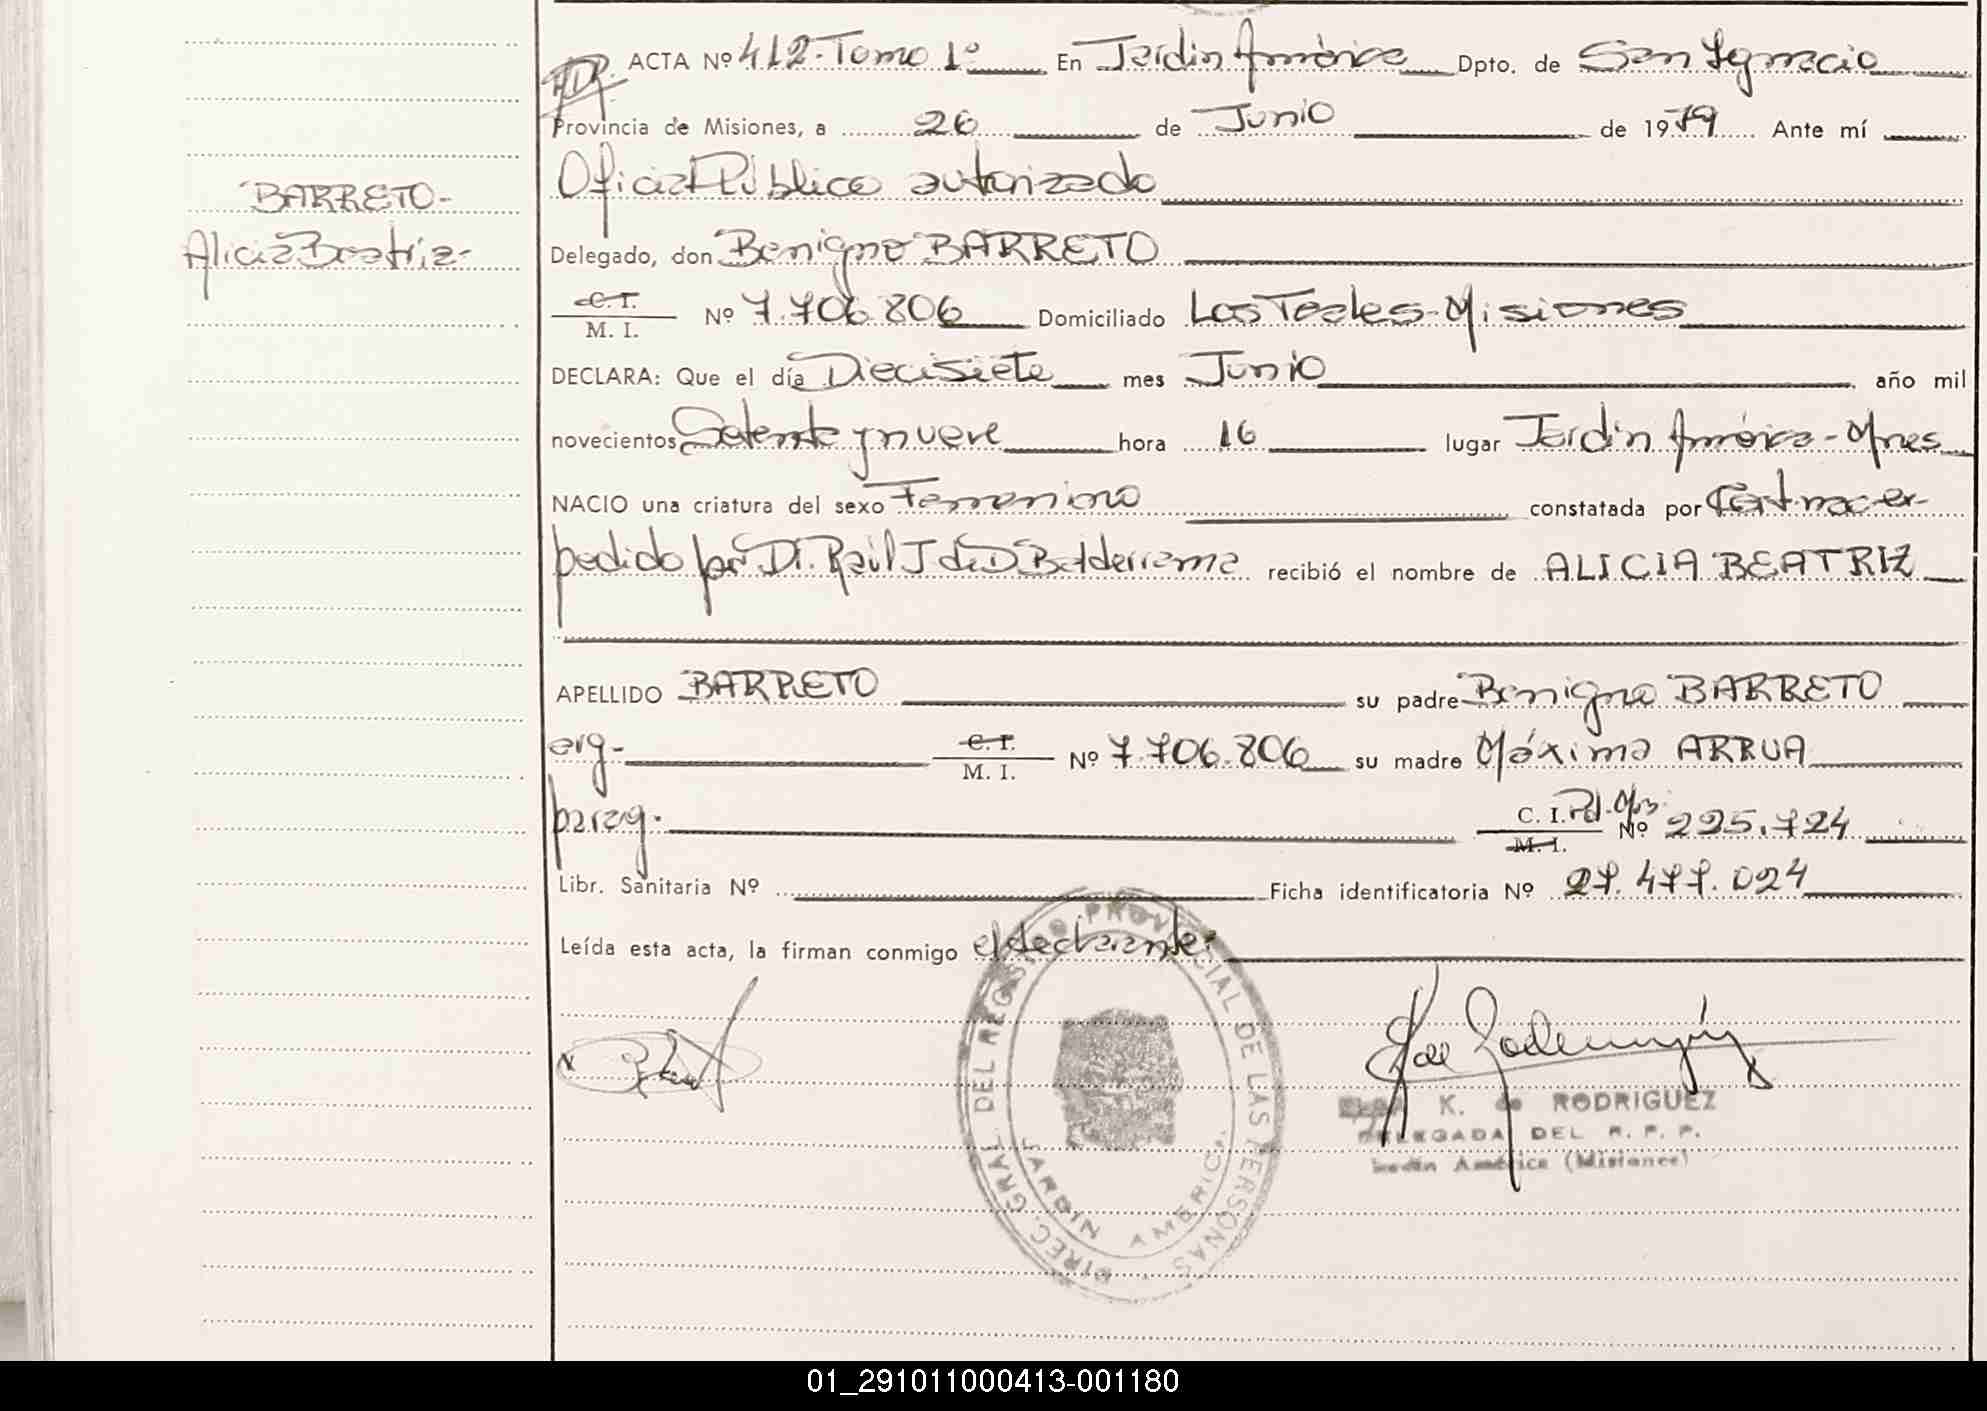 ACTA Nº 412-Tomo 1º En Jardin América Dpto. de San Ignacio
Provincia de Misiones, a 26 de Junio de 1979 Ante mí
Oficial Público autorizado
BARRETO-
Alicia Beatriz-
Delegado, don Benigno BARRETO
C. I.
M. I. Nº 7.706.806 Domiciliado Los Teales-Misiones
DECLARA: Que el día Diecisiete mes Junio año mil
novecientos Setenta y nueve hora 16 lugar Jardin América-Mnes
NACIO una criatura del sexo Femenino constatada por Cert. nac. ex-
pedido por Dr. Raúl J de D Balderrama recibió el nombre de ALICIA BEATRIZ
APELLIDO BARRETO su padre Benigno BARRETO
arg- C. I.
M. I. Nº 7.706.806 su madre Máxima ARRUA
parag. C. I. Pol. Mns
M. I. Nº 225.724
Libr. Sanitaria Nº Ficha identificatoria Nº 27.477.024
Leída esta acta, la firman conmigo el declarante.
DIREC. GRAL. DEL REGISTRO PROVINCIAL DE LAS PERSONAS
JARDIN AMERICA
K. de RODRIGUEZ
DELEGADA DEL R. P. P.
Jardín América (Misiones)
01_291011000413-001180